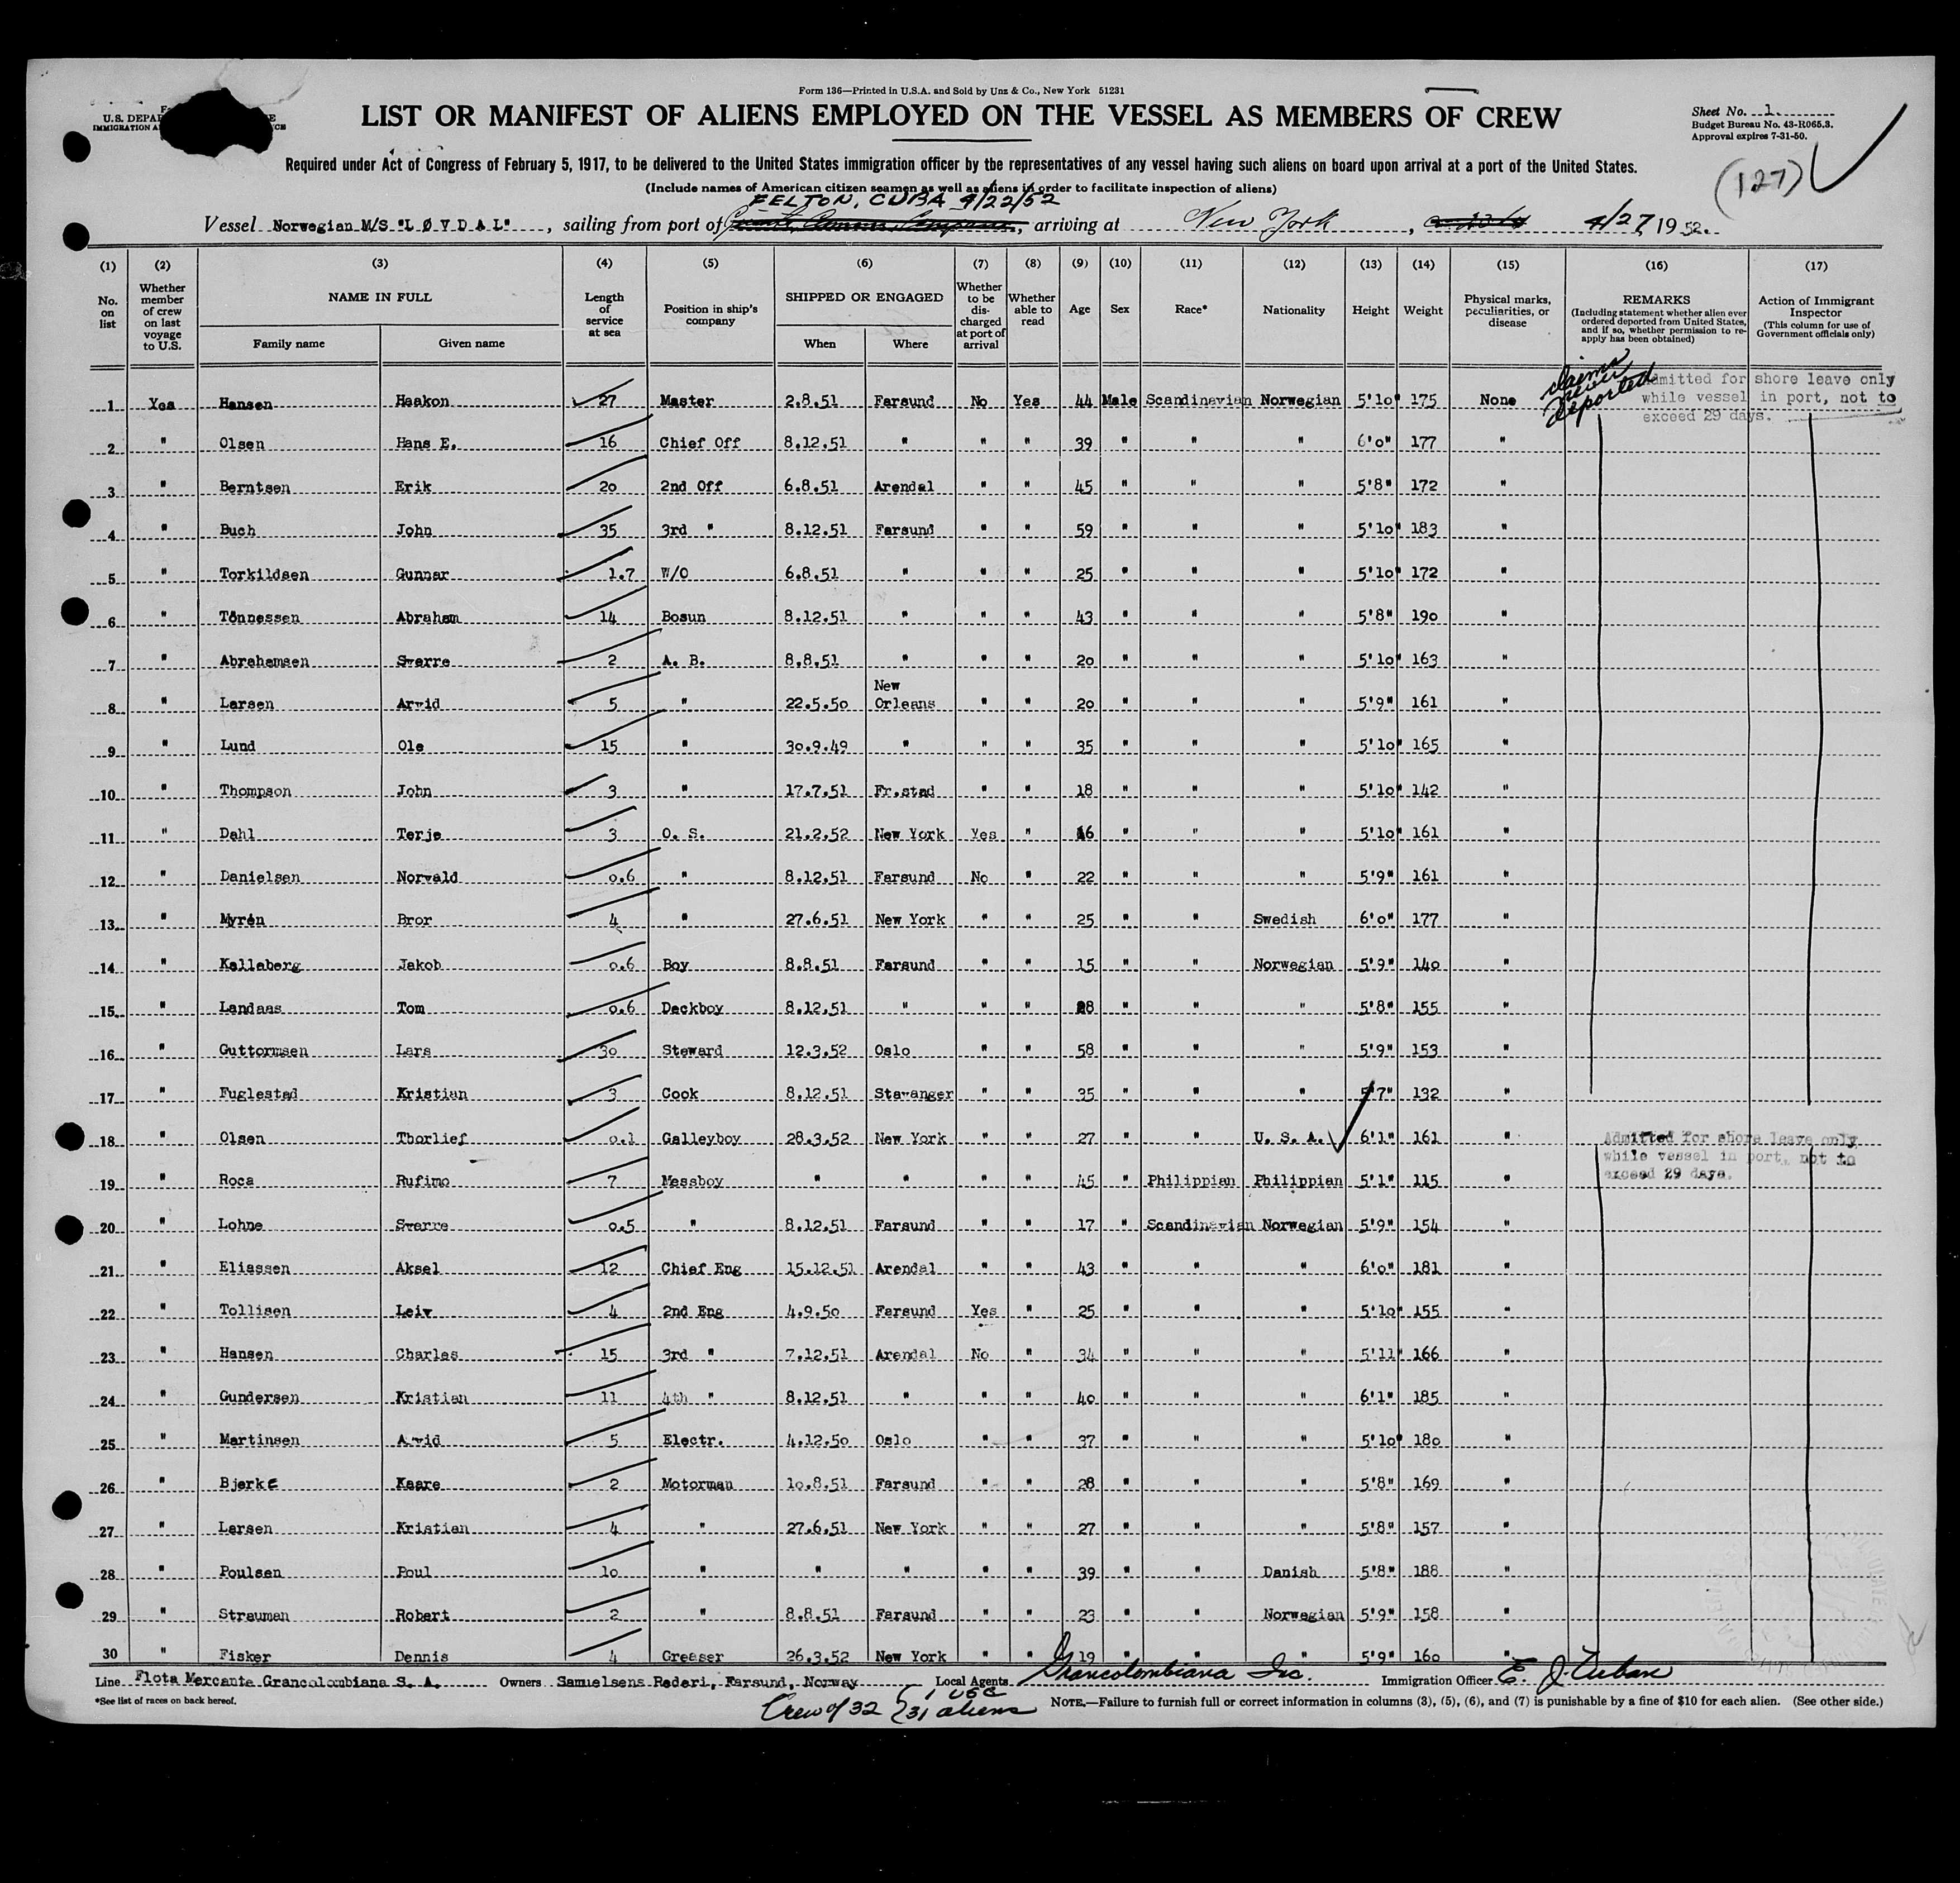 Form 136—Printed in U.S.A. and Sold by Unz & Co., New York 51231
U.S. DEPA
IMMIGRATION A
LIST OR MANIFEST OF ALIENS EMPLOYED ON THE VESSEL AS MEMBERS OF CREW
Sheet No. 1
Budget Bureau No. 43-R065.3.
Approval expires 7-31-50.
Required under Act of Congress of February 5, 1917, to be delivered to the United States immigration officer by the representatives of any vessel having such aliens on board upon arrival at a port of the United States.
(127)
(Include names of American citizen seamen as well as aliens in order to facilitate inspection of aliens)
FELTON, CUBA 4/22/52
Vessel Norwegian M/S "LØVDAL", sailing from port of , arriving at New York, 4/27, 1952.
(1) (2) (3) (4) (5) (6) (7) (8) (9) (10) (11) (12) (13) (14) (15) (16) (17)
No. on list
Whether member of crew on last voyage to U.S.
NAME IN FULL
Family name
Given name
Length of service at sea
Position in ship's company
SHIPPED OR ENGAGED
When
Where
Whether to be discharged at port of arrival
Whether able to read
Age
Sex
Race*
Nationality
Height
Weight
Physical marks, peculiarities, or disease
REMARKS
(Including statement whether alien ever ordered deported from United States, and if so, whether permission to re-apply has been obtained)
Action of Immigrant Inspector
(This column for use of Government officials only)
claims never deported
Admitted for shore leave only
while vessel in port, not to
exceed 29 days.
1 Yes Hansen Haakon 27 Master 2.8.51 Farsund No Yes 44 Male Scandinavian Norwegian 5'10" 175 None
2 " Olsen Hans E. 16 Chief Off 8.12.51 " " " 39 " " " 6'0" 177 "
3 " Berntsen Erik 20 2nd Off 6.8.51 Arendal " " 45 " " " 5'8" 172 "
4 " Buch John 35 3rd " 8.12.51 Farsund " " 59 " " " 5'10" 183 "
5 " Torkildsen Gunnar 1.7 W/O 6.8.51 " " " 25 " " " 5'10" 172 "
6 " Tönnessen Abraham 14 Bosun 8.12.51 " " " 43 " " " 5'8" 190 "
7 " Abrahamsen Sverre 2 A. B. 8.8.51 " " " 20 " " " 5'10" 163 "
8 " Larsen Arvid 5 " 22.5.50 New Orleans " " 20 " " " 5'9" 161 "
9 " Lund Ole 15 " 30.9.49 " " " 35 " " " 5'10" 165 "
10 " Thompson John 3 " 17.7.51 Fr.stad " " 18 " " " 5'10" 142 "
11 " Dahl Terje 3 O. S. 21.2.52 New York Yes " 16 " " " 5'10" 161 "
12 " Danielsen Norvald 0.6 " 8.12.51 Farsund No " 22 " " " 5'9" 161 "
13 " Myrén Bror 4 " 27.6.51 New York " " 25 " " Swedish 6'0" 177 "
14 " Kalleberg Jakob 0.6 Boy 8.8.51 Farsund " " 15 " " Norwegian 5'9" 140 "
15 " Landaas Tom 0.6 Deckboy 8.12.51 " " " " " " 5'8" 155 "
16 " Guttormsen Lars 30 Steward 12.3.52 Oslo " " 58 " " " 5'9" 153 "
17 " Fuglestad Kristian 3 Cook 8.12.51 Stavanger " " 35 " " " 5'7" 132 "
18 " Olsen Thorlief 0.1 Galleyboy 28.3.52 New York " " 27 " " U. S. A. 6'1" 161 "
Admitted for shore leave only
while vessel in port, not to
exceed 29 days.
19 " Roca Rufimo 7 Messboy " " " " 45 " Philippian Philippian 5'1" 115 "
20 " Lohne Sverre 0.5 " 8.12.51 Farsund " " 17 " Scandinavian Norwegian 5'9" 154 "
21 " Eliassen Aksel 12 Chief Eng 15.12.51 Arendal " " 43 " " " 6'0" 181 "
22 " Tollisen Leiv 4 2nd Eng 4.9.50 Farsund Yes " 25 " " " 5'10" 155 "
23 " Hansen Charles 15 3rd " 7.12.51 Arendal No " 34 " " " 5'11" 166 "
24 " Gundersen Kristian 11 4th " 8.12.51 " " " 40 " " " 6'1" 185 "
25 " Martinsen Arvid 5 Electr. 4.12.50 Oslo " " 37 " " " 5'10" 180 "
26 " Bjerke Kaare 2 Motorman 10.8.51 Farsund " " 28 " " " 5'8" 169 "
27 " Larsen Kristian 4 " 27.6.51 New York " " 27 " " " 5'8" 157 "
28 " Poulsen Poul 10 " " " " " 39 " " Danish 5'8" 188 "
29 " Strauman Robert 2 " 8.8.51 Farsund " " 23 " " Norwegian 5'9" 158 "
30 " Fisker Dennis 4 Greaser 26.3.52 New York " " 19 " " " 5'9" 160 "
Line Flota Mercante Grancolombiana S. A. Owners Samuelsens Rederi, Farsund, Norway Local Agents Grancolombiana Inc. Immigration Officer E. J.
*See list of races on back hereof.
Crew of 32 { 1 USC
31 aliens
NOTE.—Failure to furnish full or correct information in columns (3), (5), (6), and (7) is punishable by a fine of $10 for each alien. (See other side.)